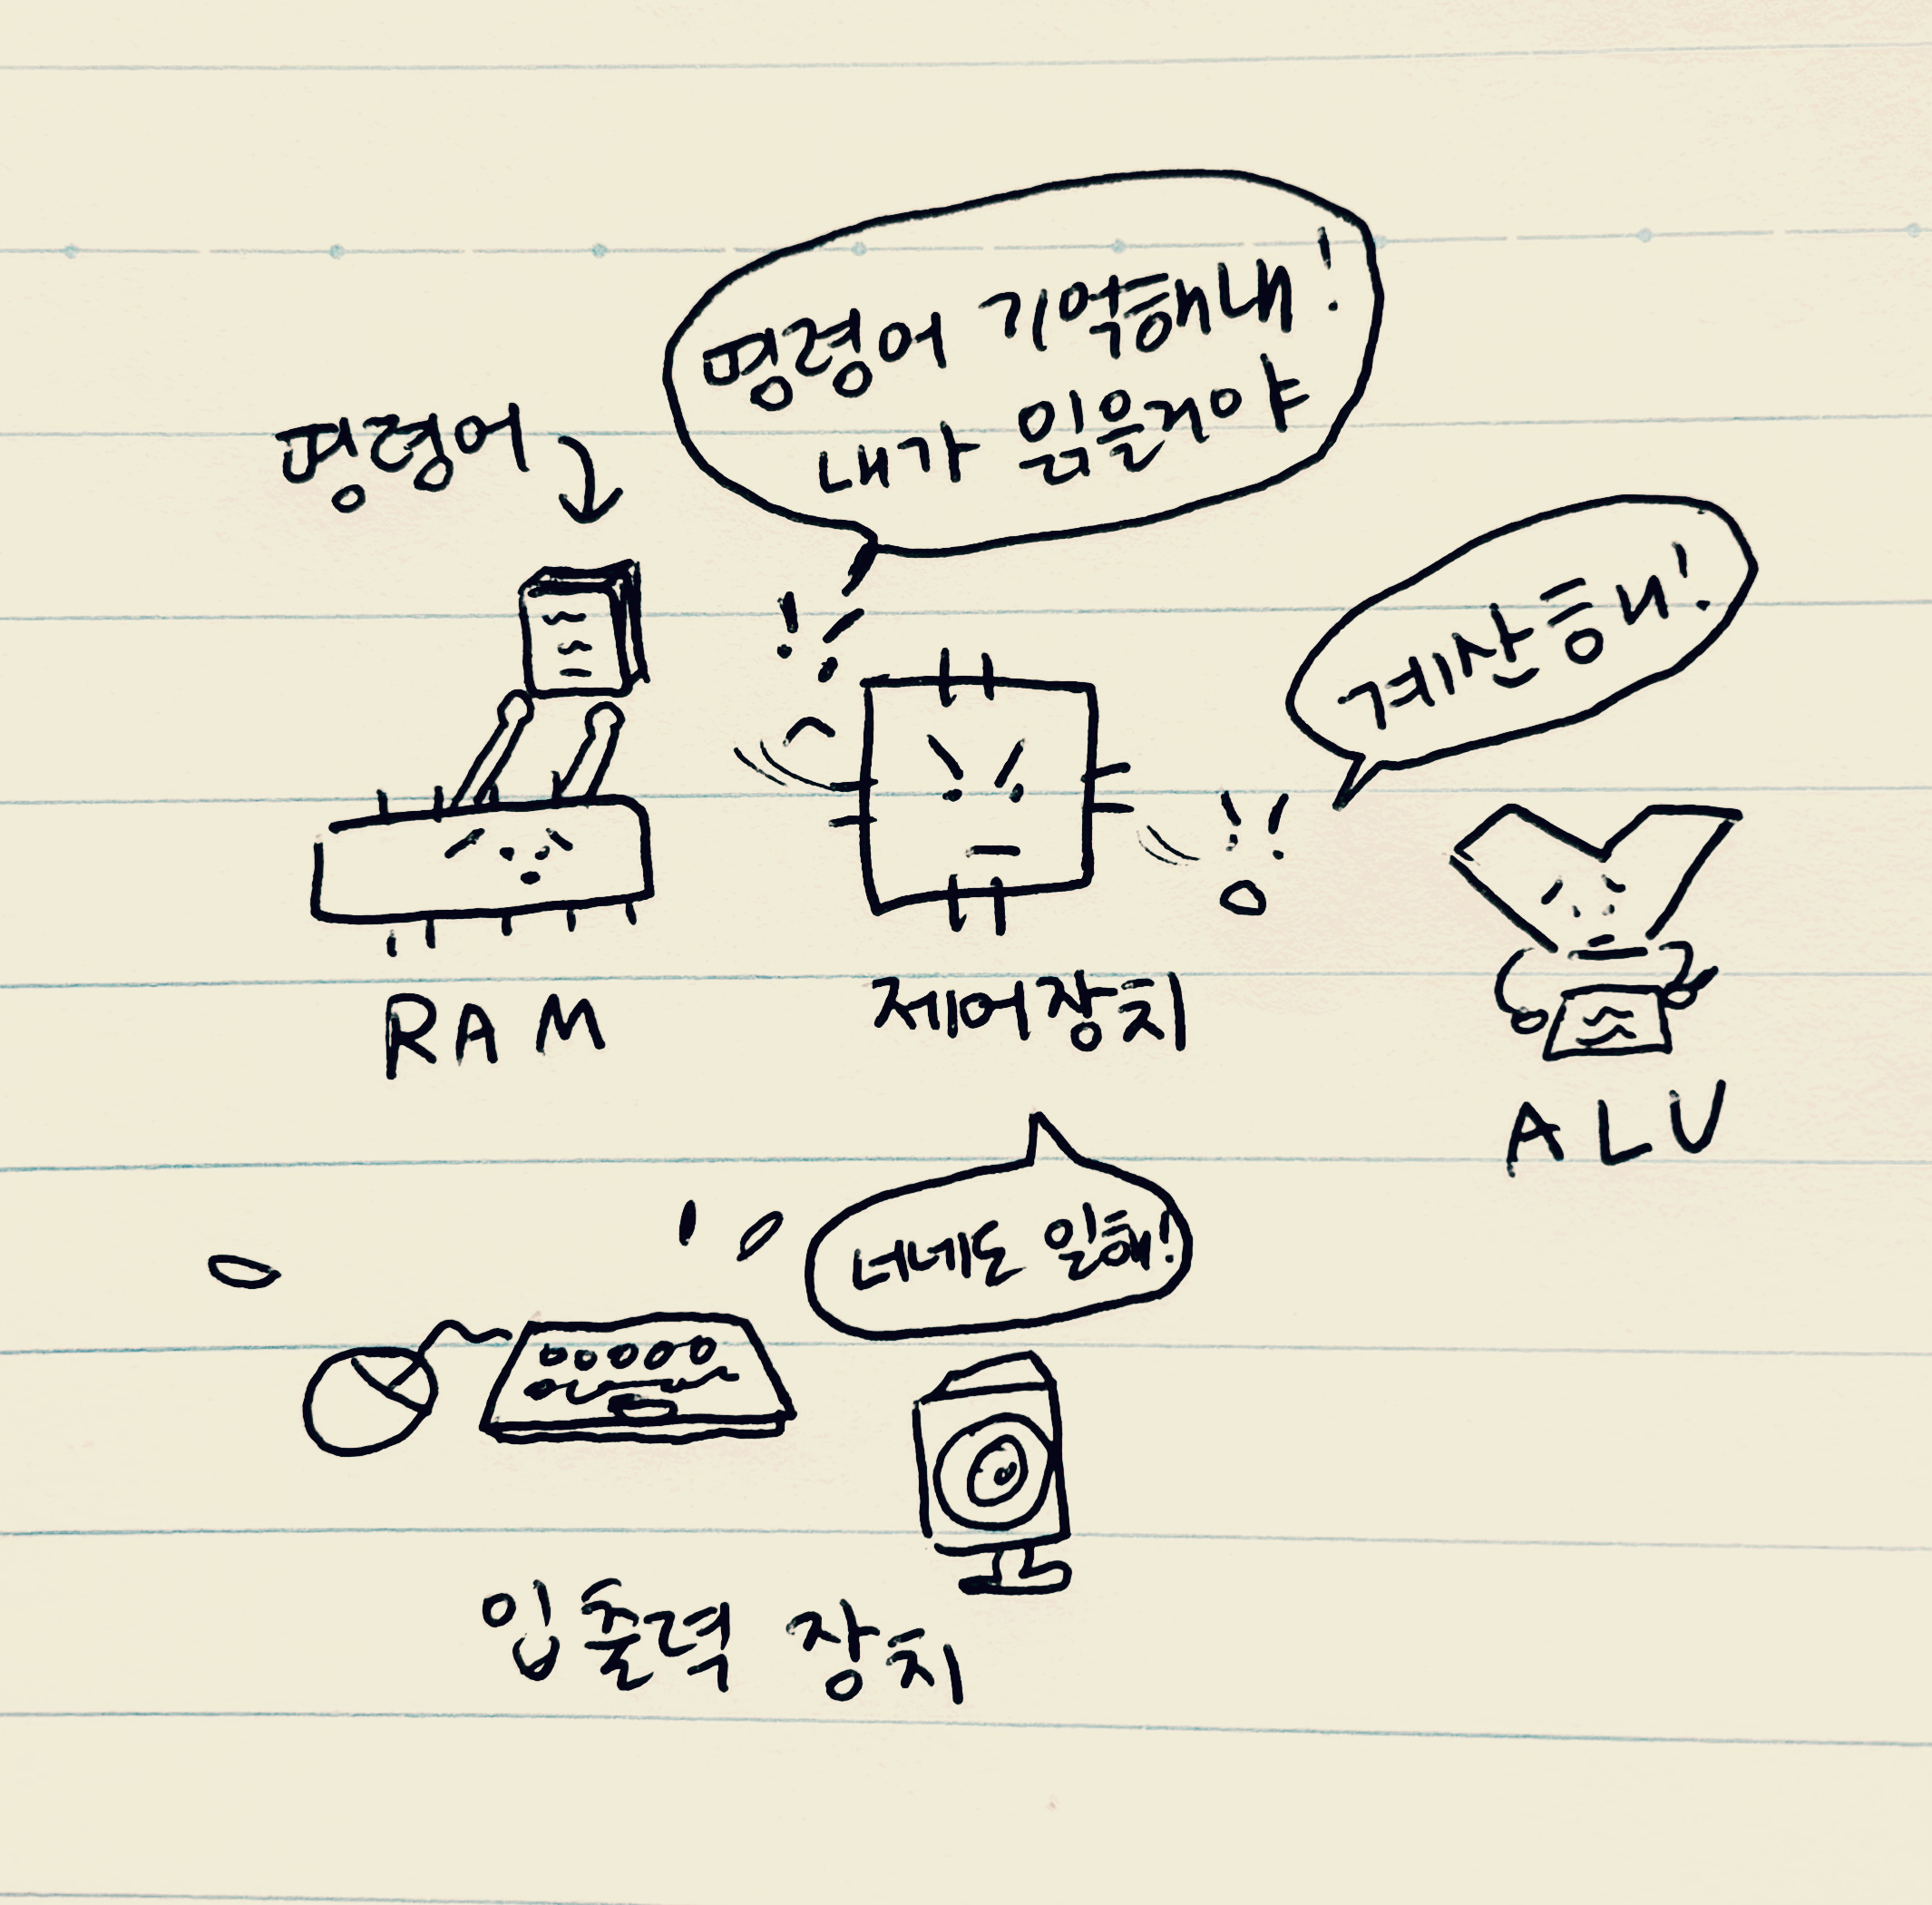 명령어 기억해내!
내가 읽을거야
명령어
계산해!
RAM
제어장치
ALU
너네도 일해!
입출력 장치